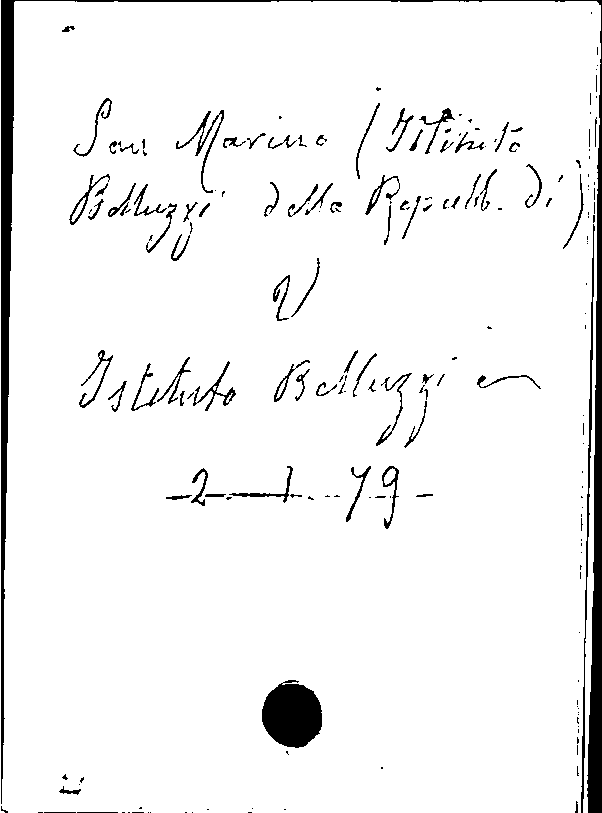 San Marino (Istituto
Belluzzi della Repubb. di)
V
Istituto Belluzzi
2 1 79